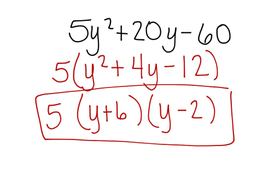 5y²+20y-60
5(y²+4y-12)
5 (y+6)(y-2)